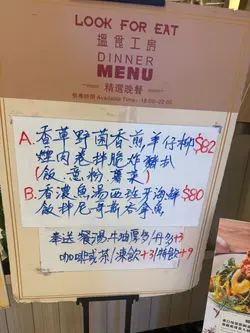 LOOK FOR EAT
搵食工房
DINNER
MENU
精選晚餐
供應時間 Available Time: 18:00-22:00
A. 香草野菌香煎羊仔柳 $82
煙肉卷拌脆炸豬扒
(飯、意粉、薯菜)
B. 香濃魚湯西班牙海鮮 $80
飯拌尼哥斯吞拿魚
奉送餐湯、牛油厚多/丹多+3
咖啡或茶/凍飲+3/特飲+9